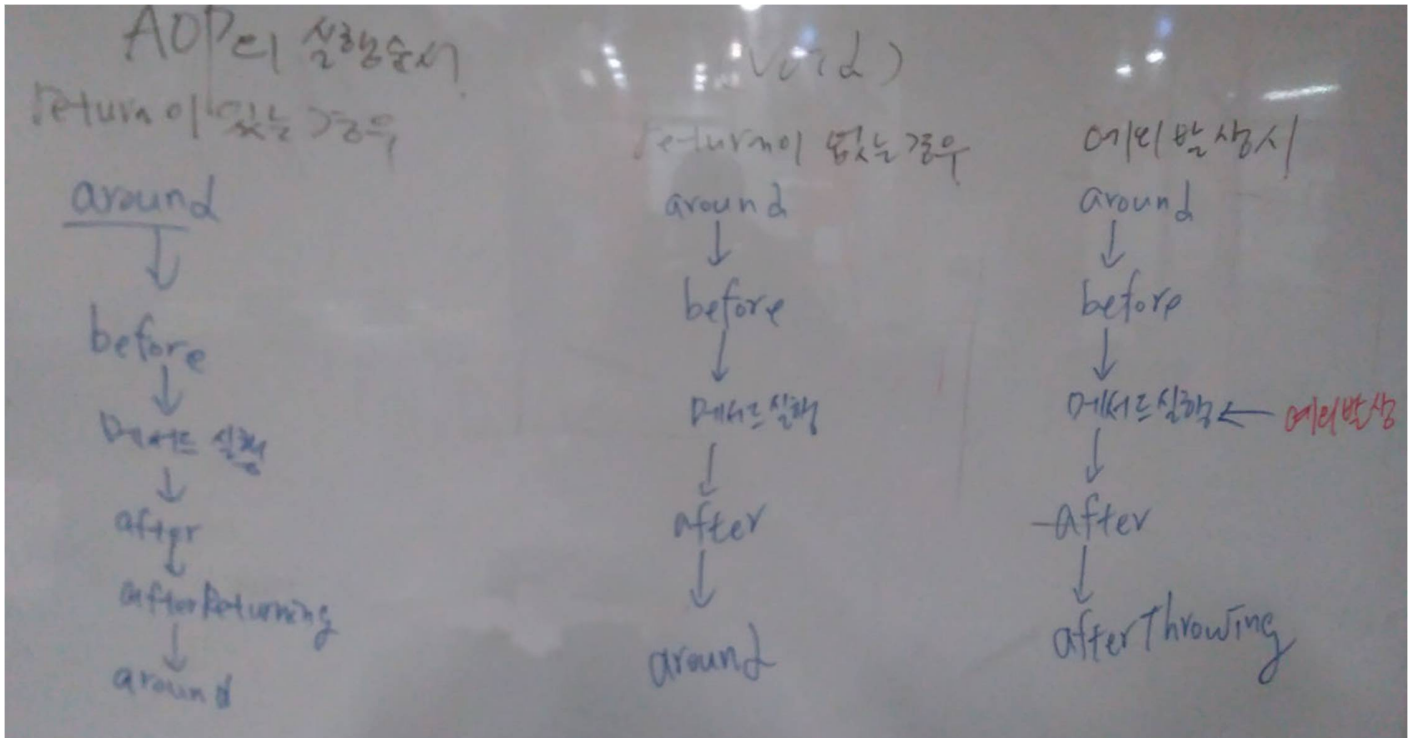 AOP의 실행순서
return이 있는 경우
around
↓
before
↓
메서드 실행
↓
after
↓
afterReturning
↓
around
(void)
return이 없는 경우
around
↓
before
↓
메서드 실행
↓
after
↓
around
예외 발생시
around
↓
before
↓
메서드 실행 ← 예외발생
↓
after
↓
afterThrowing